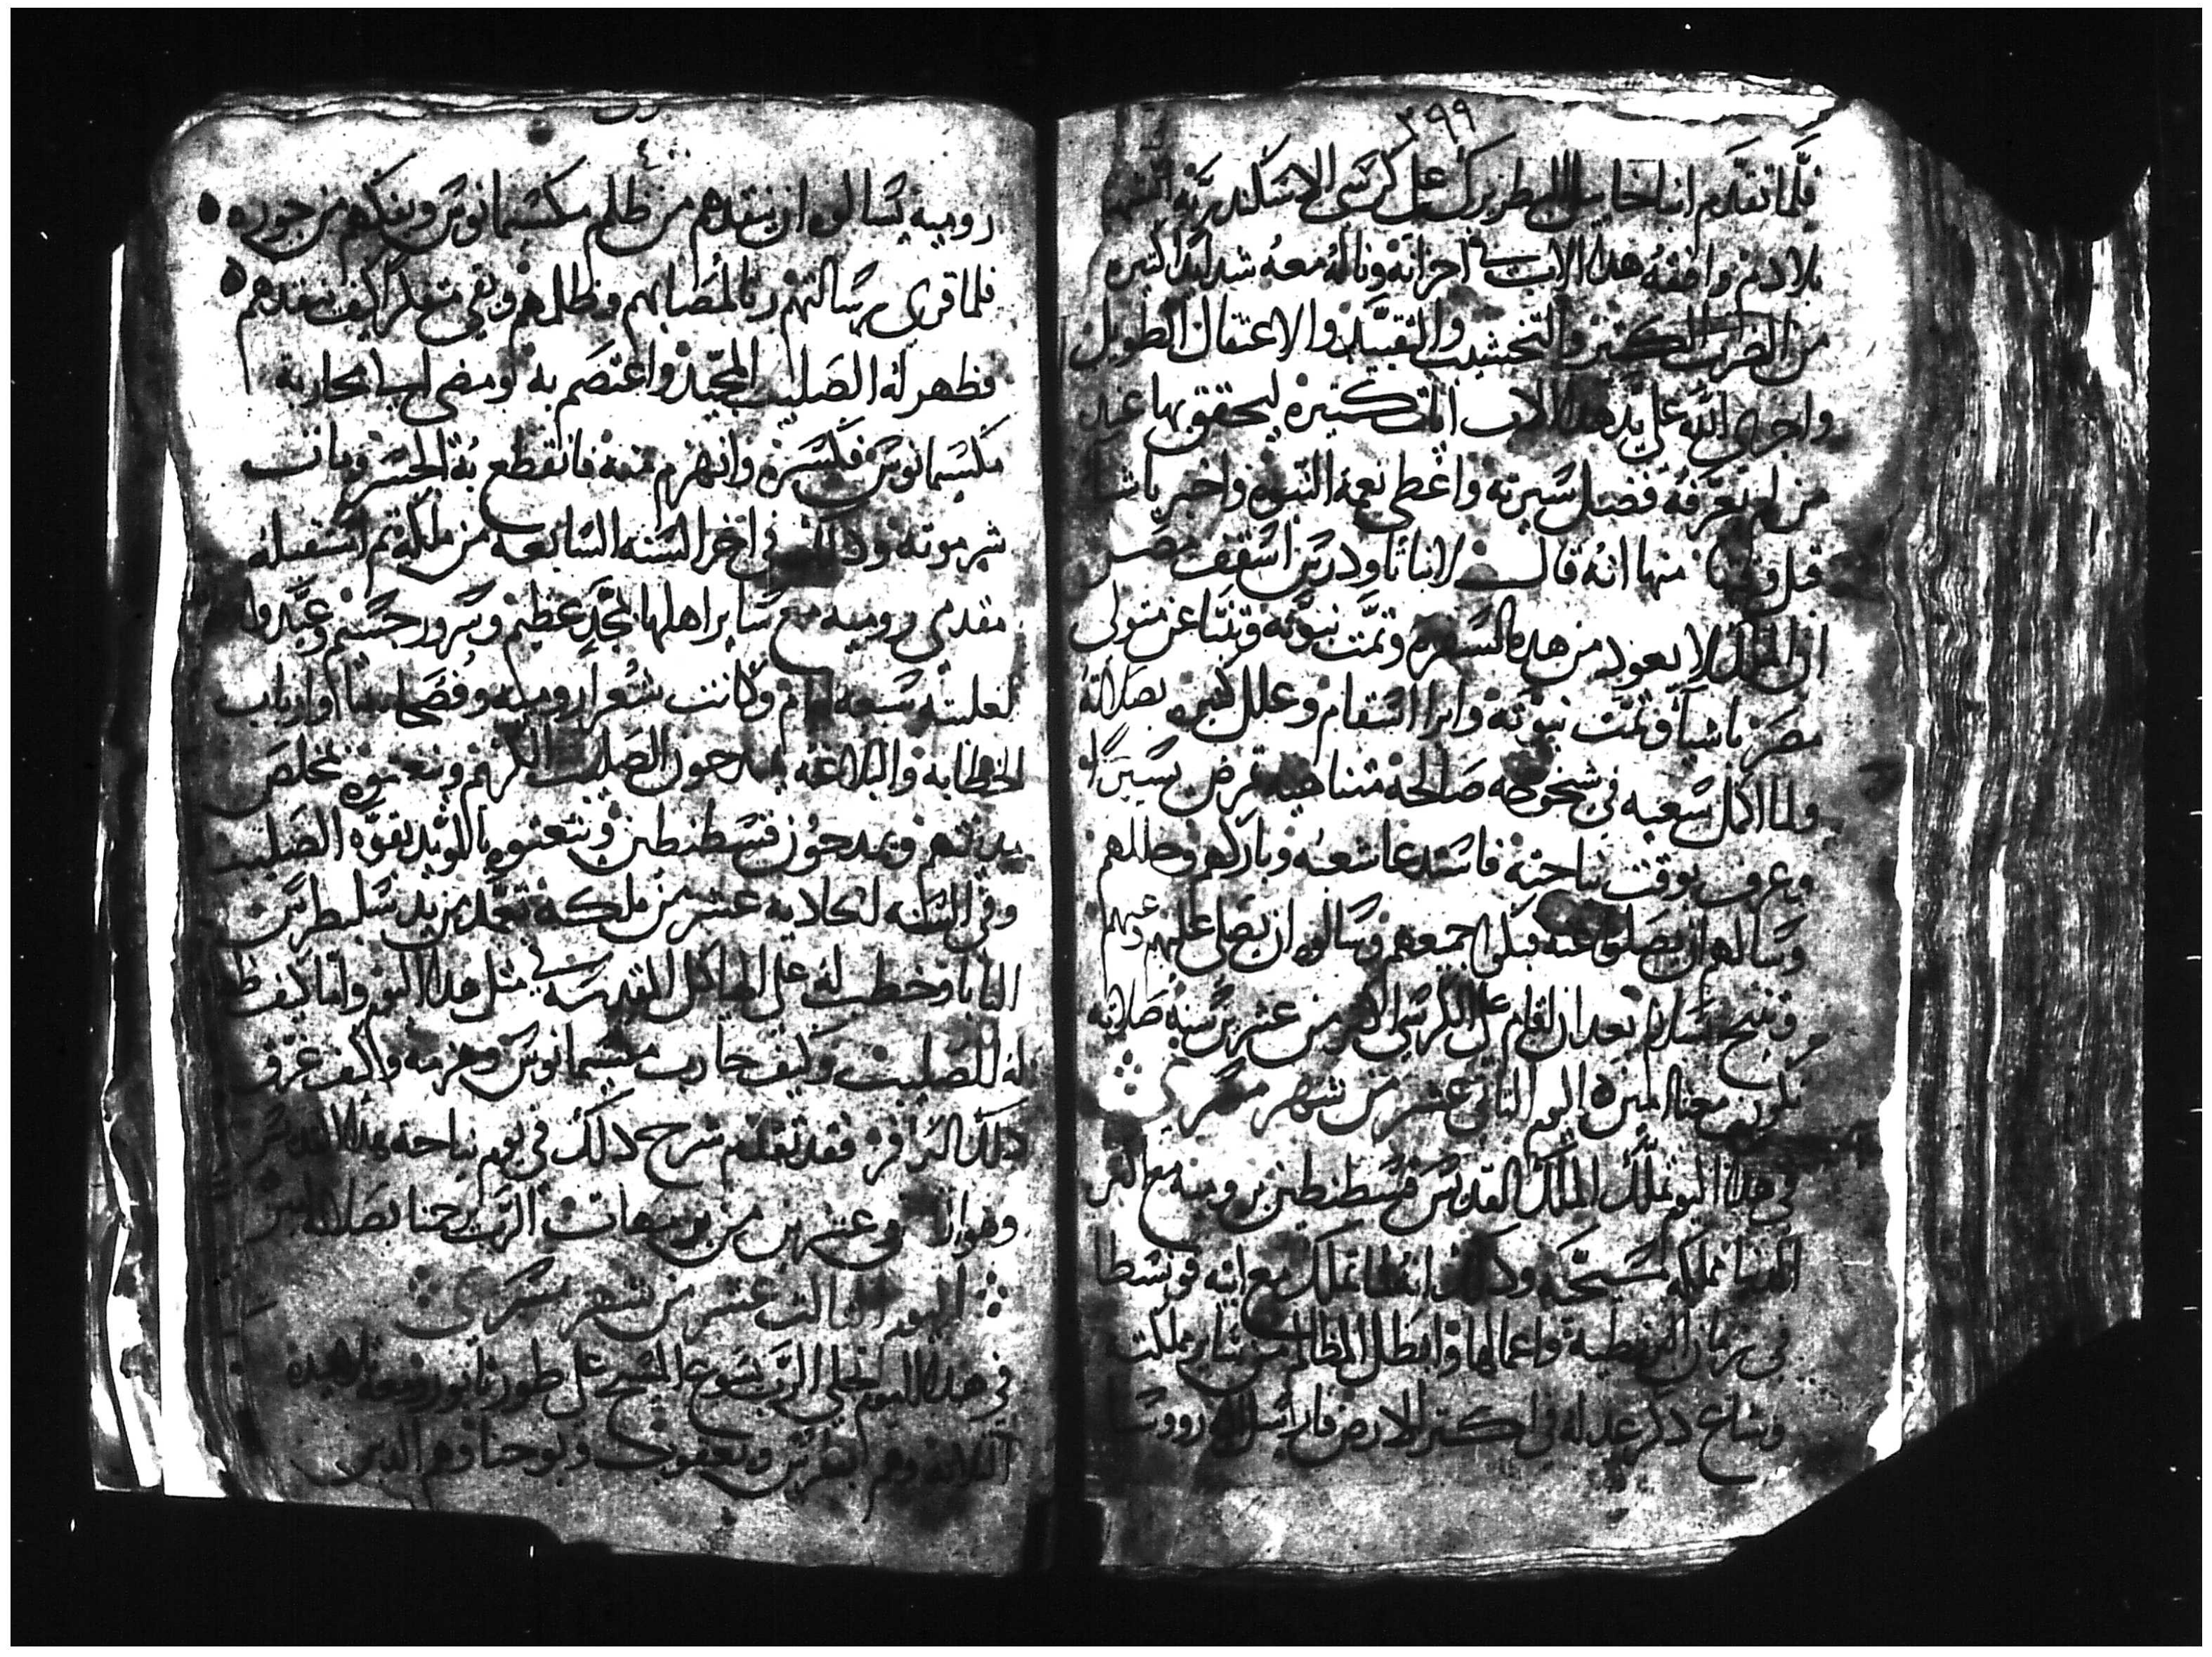 ٣٩٩
فلما تقدم انبا خايل البطريرك على كرسي الاسكندرية
بلادهم وافقه هذا الاب في احزانه وناله معه شدايد كثيره
من الضرب الكثير والتخشيب والتقييد والاعتقال الطويل
واجرى الله على يد هذا الاب ايات كثيره ليتحقق بها عند
من لم يعرفه فضل سيرته واعطي نعمة النبوه واخبر باشيا
قبل منها انه قال لانبا تاودريس اسقف مصر
ان لا يعود من هذه السفره وتمت نبوته وتنبا عن متولى
مصر باشيا وتمت نبوته وابرا اسقام وعلل كثيره بصلاته
ولما اكمل سعيه في شيخوخه صالحة متناهيه مرض يسيرا
وعرف بوقت نياحته فاستدعا شعبه وباركهم وحاللهم
وسالهم ان يصلوا عنه فبكى جميعهم وسالوه ان يصلي عليهم وعنهم
وتنيح بسلام بعد ان اقام على الكرسي اكثر من عشرين سنة صلاته
تكون معنا امين ٥ اليوم الثاني عشر من شهر مسري
في هذا اليوم تملك الملك القديس قسطنطين برومية مع
مملكه مسيحيه وذلك انه لما تملك مع ابيه قونسطا
في بزنطية واعمالها وابطل المظالم من ساير مملكته
وشاع ذكر عدله في اكثر الارض فارسل اليه رووسا
٤٠٠
رومية يسالوه ان ينقذهم من ظلم مكسيمانوس ويفكهم من جوره ٥
فلما قرى رسالتهم رتا لمصابهم وظلمهم وبقي متفكرا كيف ينقذهم ٥
فظهر له الصليب المجيد واعتصم به ومضى الى محاربة
مكسيمانوس فكسره وانهزم منه فانقطع به الجسر ومات
شر موته وذلك في اخر السنه السابعه من ملكه ثم استقبله
مقدمي روميه مع ساير اهلها بمجد عظيم وسرور جسيم وعيدوا
لغلبته سبعه ايام وكانت شعرا روميه وفصحاها وارباب
الخطابة والبلاغه يمدحون الصليب الكريم وينعتوه بمخلص
مدينتهم ويمدحون قسطنطين وينعتوه بالمويد بقوه الصليب
وفي السنه الحادية عشر من ملكه تعمد بيد سلبطرس
البابا وخطب له على الهياكل المقدسه في مثل هذا اليوم واما كيف ظهر
له الصليب وكيف حارب مكسيمانوس وهزمه وكيف غرق
ذلك الكافر فقد تقدم شرح ذلك في يوم نياحة هذا القديس
وهو تامن وعشرين من برمهات الرب يرحمنا بصلاته امين
اليوم الثالث عشر من شهر مسري
في هذا اليوم تجلي الرب يسوع المسيح على طور تابور ومعه تلاميذه
الثلاثه وهم بطرس ويعقوب ويوحنا وهم الدين